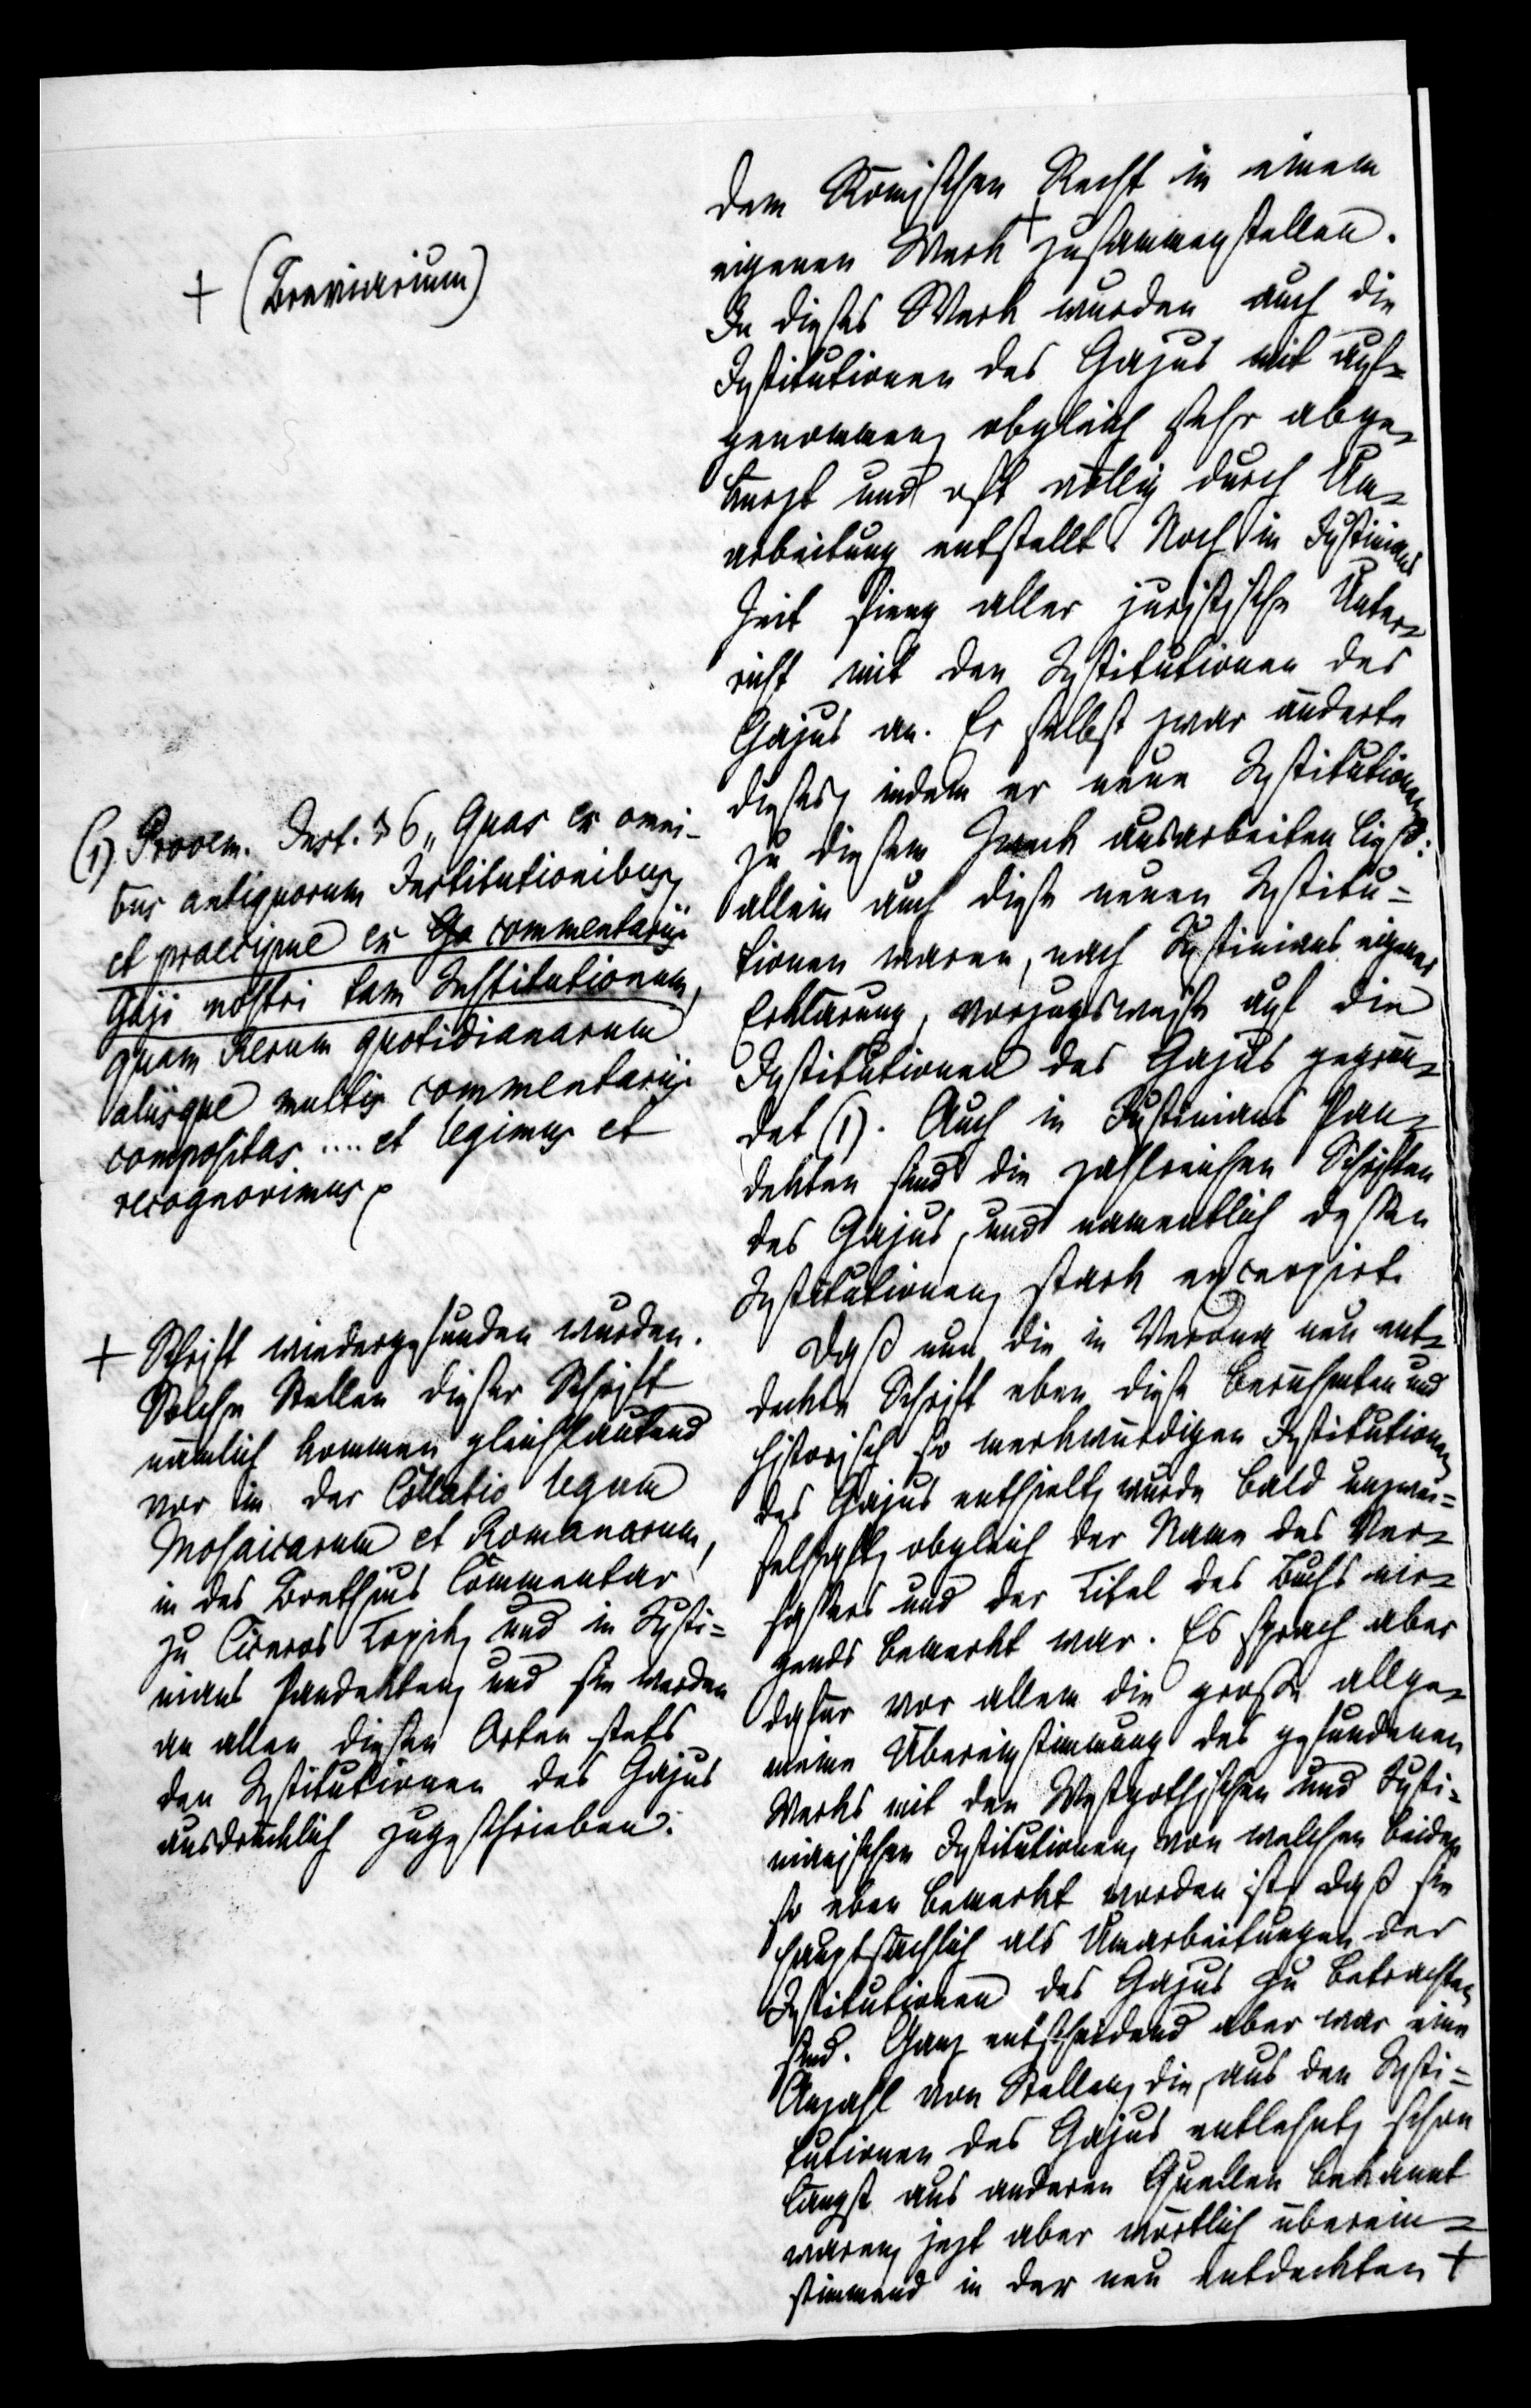 dem Römischen Recht in einem
eigenen Werk + zusammenstellen.
In dieses Werk wurden auch die
Institutionen des Gajus mit auf-
genommen, obgleich sehr abge-
kürzt und oft völlig durch Um-
arbeitung entstellt. Noch in Justinians
Zeit fieng aller juristische Unter-
richt mit den Institutionen des
Gajus an. Er selbst zwar änderte
dieses, indem er neue Institutionen
zu diesem Zweck ausarbeiten ließ:
allein auch diese neuen Institu-
tionen waren, nach Justinians eigener
Erklärung, vorzugsweise auf die
Institutionen des Gajus gegrün-
det (1). Auch in Justinians Pan-
dekten sind die zahlreichen Schriften
des Gajus, und namentlich dessen
Institutionen, stark excerpirt.
Daß nun die in Verona neu ent-
deckte Schrift eben diese berühmten und
historisch so merkwürdigen Institutionen
des Gajus enthielt, wurde bald unzwei-
felhaft, obgleich der Name des Ver-
fassers und der Titel des Buchs nir-
gends bemerkt war. Es sprach aber
dafür vor allem die große allge-
meine Übereinstimmung des gefundenen
Werks mit den Westgothischen und Justi-
nianischen Institutionen, von welchen beiden
so eben bemerkt worden ist, daß sie
hauptsächlich als Umarbeitungen der
Institutionen des Gajus zu betrachten
sind. Ganz entscheidend aber war eine
Anzahl von Stellen, die, aus den Insti-
tutionen des Gajus entlehnt, schon
längst aus anderen Quellen bekannt
waren, jezt aber wörtlich überein-
stimmend in der neu entdeckten +
+ (Breviarium)
(1) Prooem. Inst. § 6 „Quas ex omni-
bus antiquorum Institutionibus,
et praecipue ex Ga commentariis
Gaji nostri tam Institutionum,
quam Rerum quotidianarum
aliisque multis commentariis
compositas .... et legimus et
recognovimus
+ Schrift wiedergefunden wurden.
Solche Stellen dieser Schrift
nämlich kommen gleichlautend
vor in der Collatio legum
Mosaicarum et Romanarum,
in des Boethius Commentar
zu Ciceros Topik, und in Justi-
nians Pandekten, und sie werden
an allen diesen Orten stets
den Institutionen des Gajus
ausdrücklich zugeschrieben.